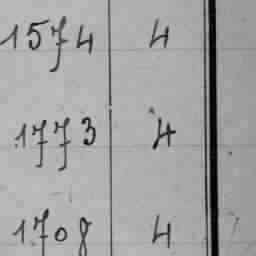 1574 4
1773 4
1708 4